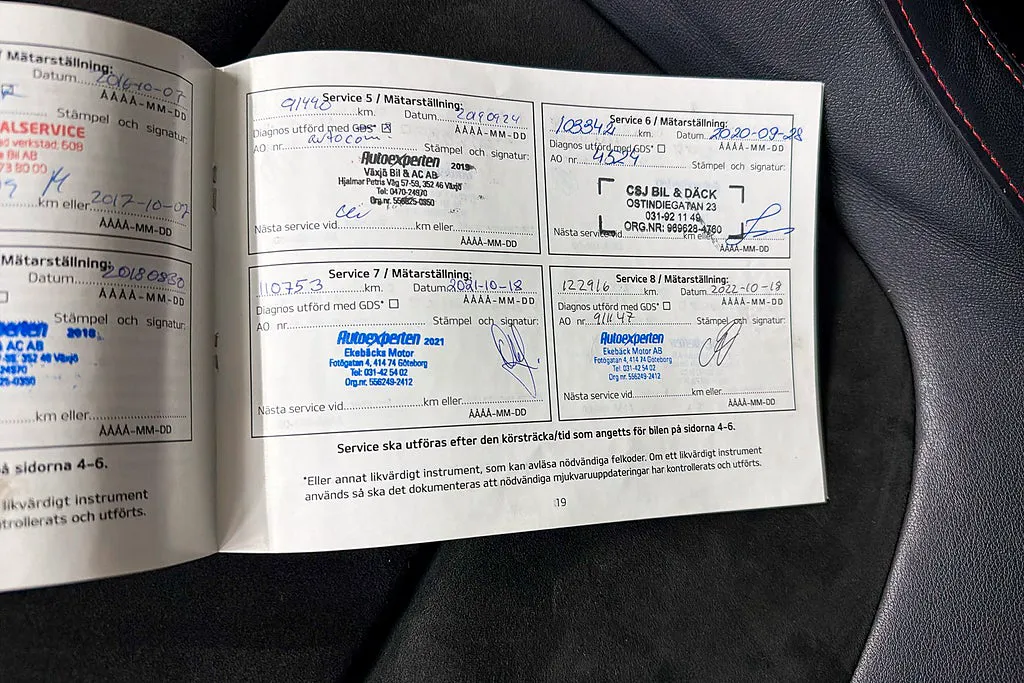 / Mätarställning:
Datum. 2016-10-07
ÅÅÅÅ-MM-DD
Stämpel och signatur:
ALSERVICE
ad verkstad: 608
Bil AB
73 80 00
km eller. 2017-10-07
ÅÅÅÅ-MM-DD
Mätarställning:
Datum. 20180830
ÅÅÅÅ-MM-DD
Stämpel och signatur:
xperten 2018
AC AB
59, 352 46 Växjö
24970
25-0350
km eller
ÅÅÅÅ-MM-DD
på sidorna 4-6.
likvärdigt instrument
ntrollerats och utförts.
Service 5 / Mätarställning:
91490 km. Datum. 20190924
Diagnos utförd med GDS* ☒ ÅÅÅÅ-MM-DD
autocom
AO nr. Stämpel och signatur:
Autoexperten 2019
Växjö Bil & AC AB
Hjalmar Petris Väg 57-59, 352 46 Växjö
Tel: 0470-24970
Org.nr. 556825-0350
Nästa service vid km eller
ÅÅÅÅ-MM-DD
Service 6 / Mätarställning:
103342 km. Datum. 2020-09-28
Diagnos utförd med GDS* ☐ ÅÅÅÅ-MM-DD
AO nr. 4524 Stämpel och signatur:
CSJ BIL & DÄCK
OSTINDIEGATAN 23
031-92 11 49
ORG.NR: 969628-4760
Nästa service vid km eller
ÅÅÅÅ-MM-DD
Service 7 / Mätarställning:
110753 km. Datum 2021-10-18
Diagnos utförd med GDS* ☐ ÅÅÅÅ-MM-DD
AO nr. Stämpel och signatur:
Autoexperten 2021
Ekebäcks Motor
Fotögatan 4, 414 74 Göteborg
Tel: 031-42 54 02
Org.nr. 556249-2412
Nästa service vid km eller
ÅÅÅÅ-MM-DD
Service 8 / Mätarställning:
122916 km. Datum 2022-10-18
Diagnos utförd med GDS* ☐ ÅÅÅÅ-MM-DD
AO nr. 91147 Stämpel och signatur:
Autoexperten
Ekebäck Motor AB
Fotögatan 4, 414 74 Göteborg
Tel: 031-42 54 02
Org.nr. 556249-2412
Nästa service vid km eller
ÅÅÅÅ-MM-DD
Service ska utföras efter den körsträcka/tid som angetts för bilen på sidorna 4-6.
*Eller annat likvärdigt instrument, som kan avläsa nödvändiga felkoder. Om ett likvärdigt instrument
används så ska det dokumenteras att nödvändiga mjukvaruuppdateringar har kontrollerats och utförts.
19